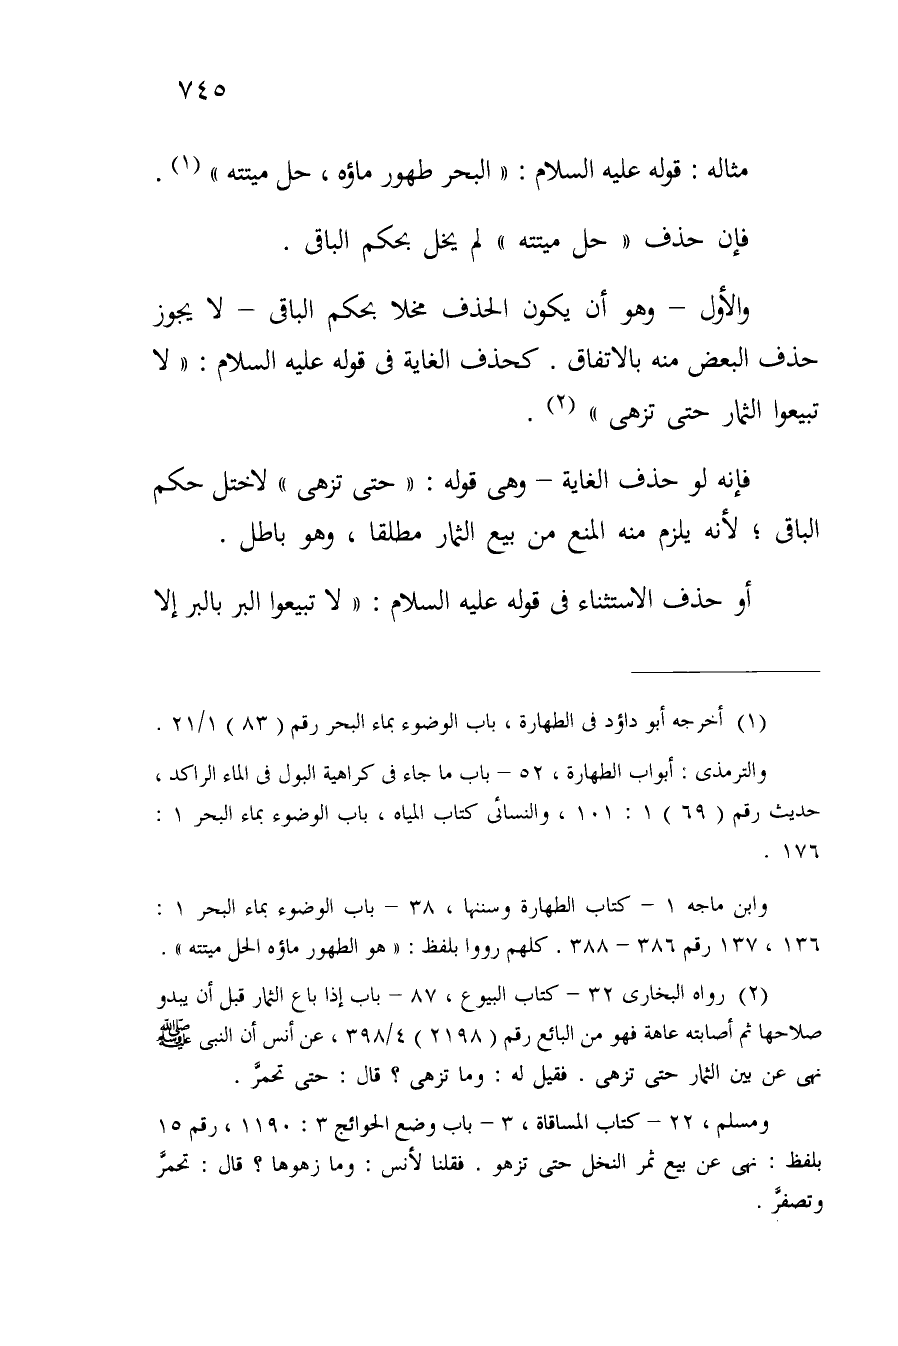 ٧٤٥
مثاله : قوله عليه السلام : « البحر طهور ماؤه ، حل ميتته » (١) .
فإن حذف « حل ميتته » لم يخل بحكم الباقى .
والأول – وهو أن يكون الحذف مخلا بحكم الباقى – لا يجوز
حذف البعض منه بالاتفاق . كحذف الغاية فى قوله عليه السلام : « لا
تبيعوا الثمار حتى تزهى » (٢) .
فإنه لو حذف الغاية – وهى قوله : « حتى تزهى » لاختل حكم
الباقى ؛ لأنه يلزم منه المنع من بيع الثمار مطلقا ، وهو باطل .
أو حذف الاستثناء فى قوله عليه السلام : « لا تبيعوا البر بالبر إلا
(١) أخرجه أبو داؤد فى الطهارة ، باب الوضوء بماء البحر رقم ( ٨٣ ) ٢١/١ .
والترمذى : أبواب الطهارة ، ٥٢ – باب ما جاء فى كراهية البول فى الماء الراكد ،
حديث رقم ( ٦٩ ) ١ : ١٠١ ، والنسائى كتاب المياه ، باب الوضوء بماء البحر ١ :
١٧٦ .
وابن ماجه ١ – كتاب الطهارة وسننها ، ٣٨ – باب الوضوء بماء البحر ١ :
١٣٦ ، ١٣٧ رقم ٣٨٦ – ٣٨٨ . كلهم رووا بلفظ : « هو الطهور ماؤه الحل ميتته » .
(٢) رواه البخارى ٣٢ – كتاب البيوع ، ٨٧ – باب إذا باع الثمار قبل أن يبدو
صلاحها ثم أصابته عاهة فهو من البائع رقم ( ٢١٩٨ ) ٣٩٨/٤ ، عن أنس أن النبى ﷺ
نهى عن بين الثمار حتى تزهى . فقيل له : وما تزهى ؟ قال : حتى تحمرَّ .
ومسلم ، ٢٢ – كتاب المساقاة ، ٣ – باب وضع الحوائج ٣ : ١١٩٠ ، رقم ١٥
بلفظ : نهى عن بيع ثمر النخل حتى تزهو . فقلنا لأنس : وما زهوها ؟ قال : تحمرَّ
وتصفرَّ .